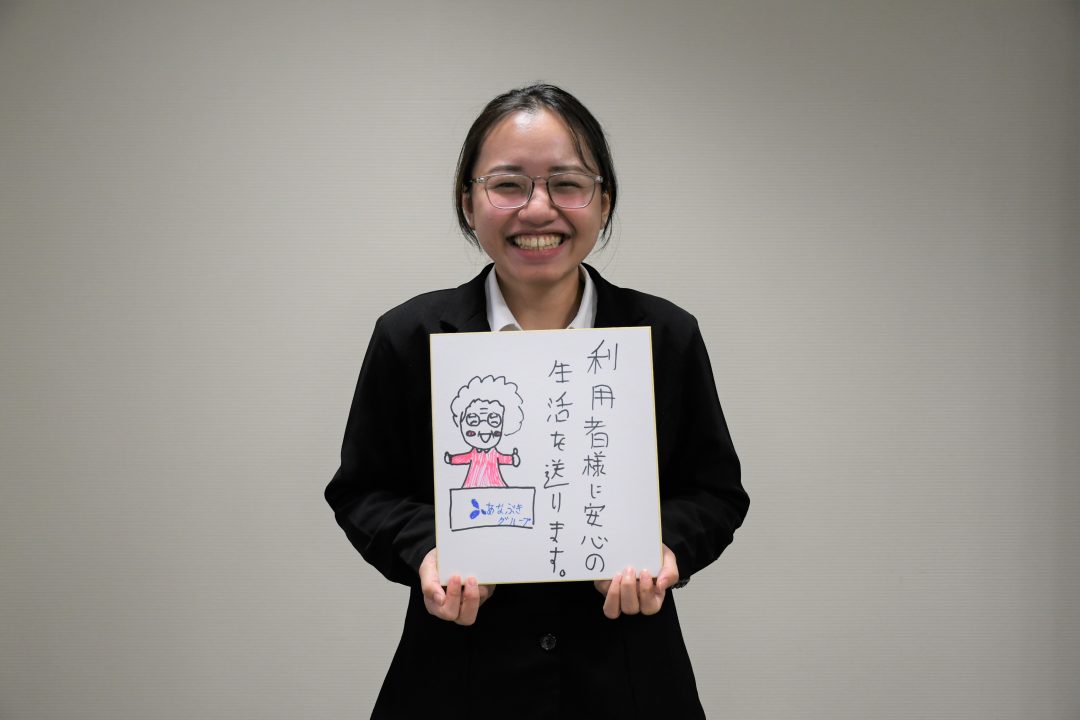 利用者様に安心の
生活を送ります。
あなぶき
グループ